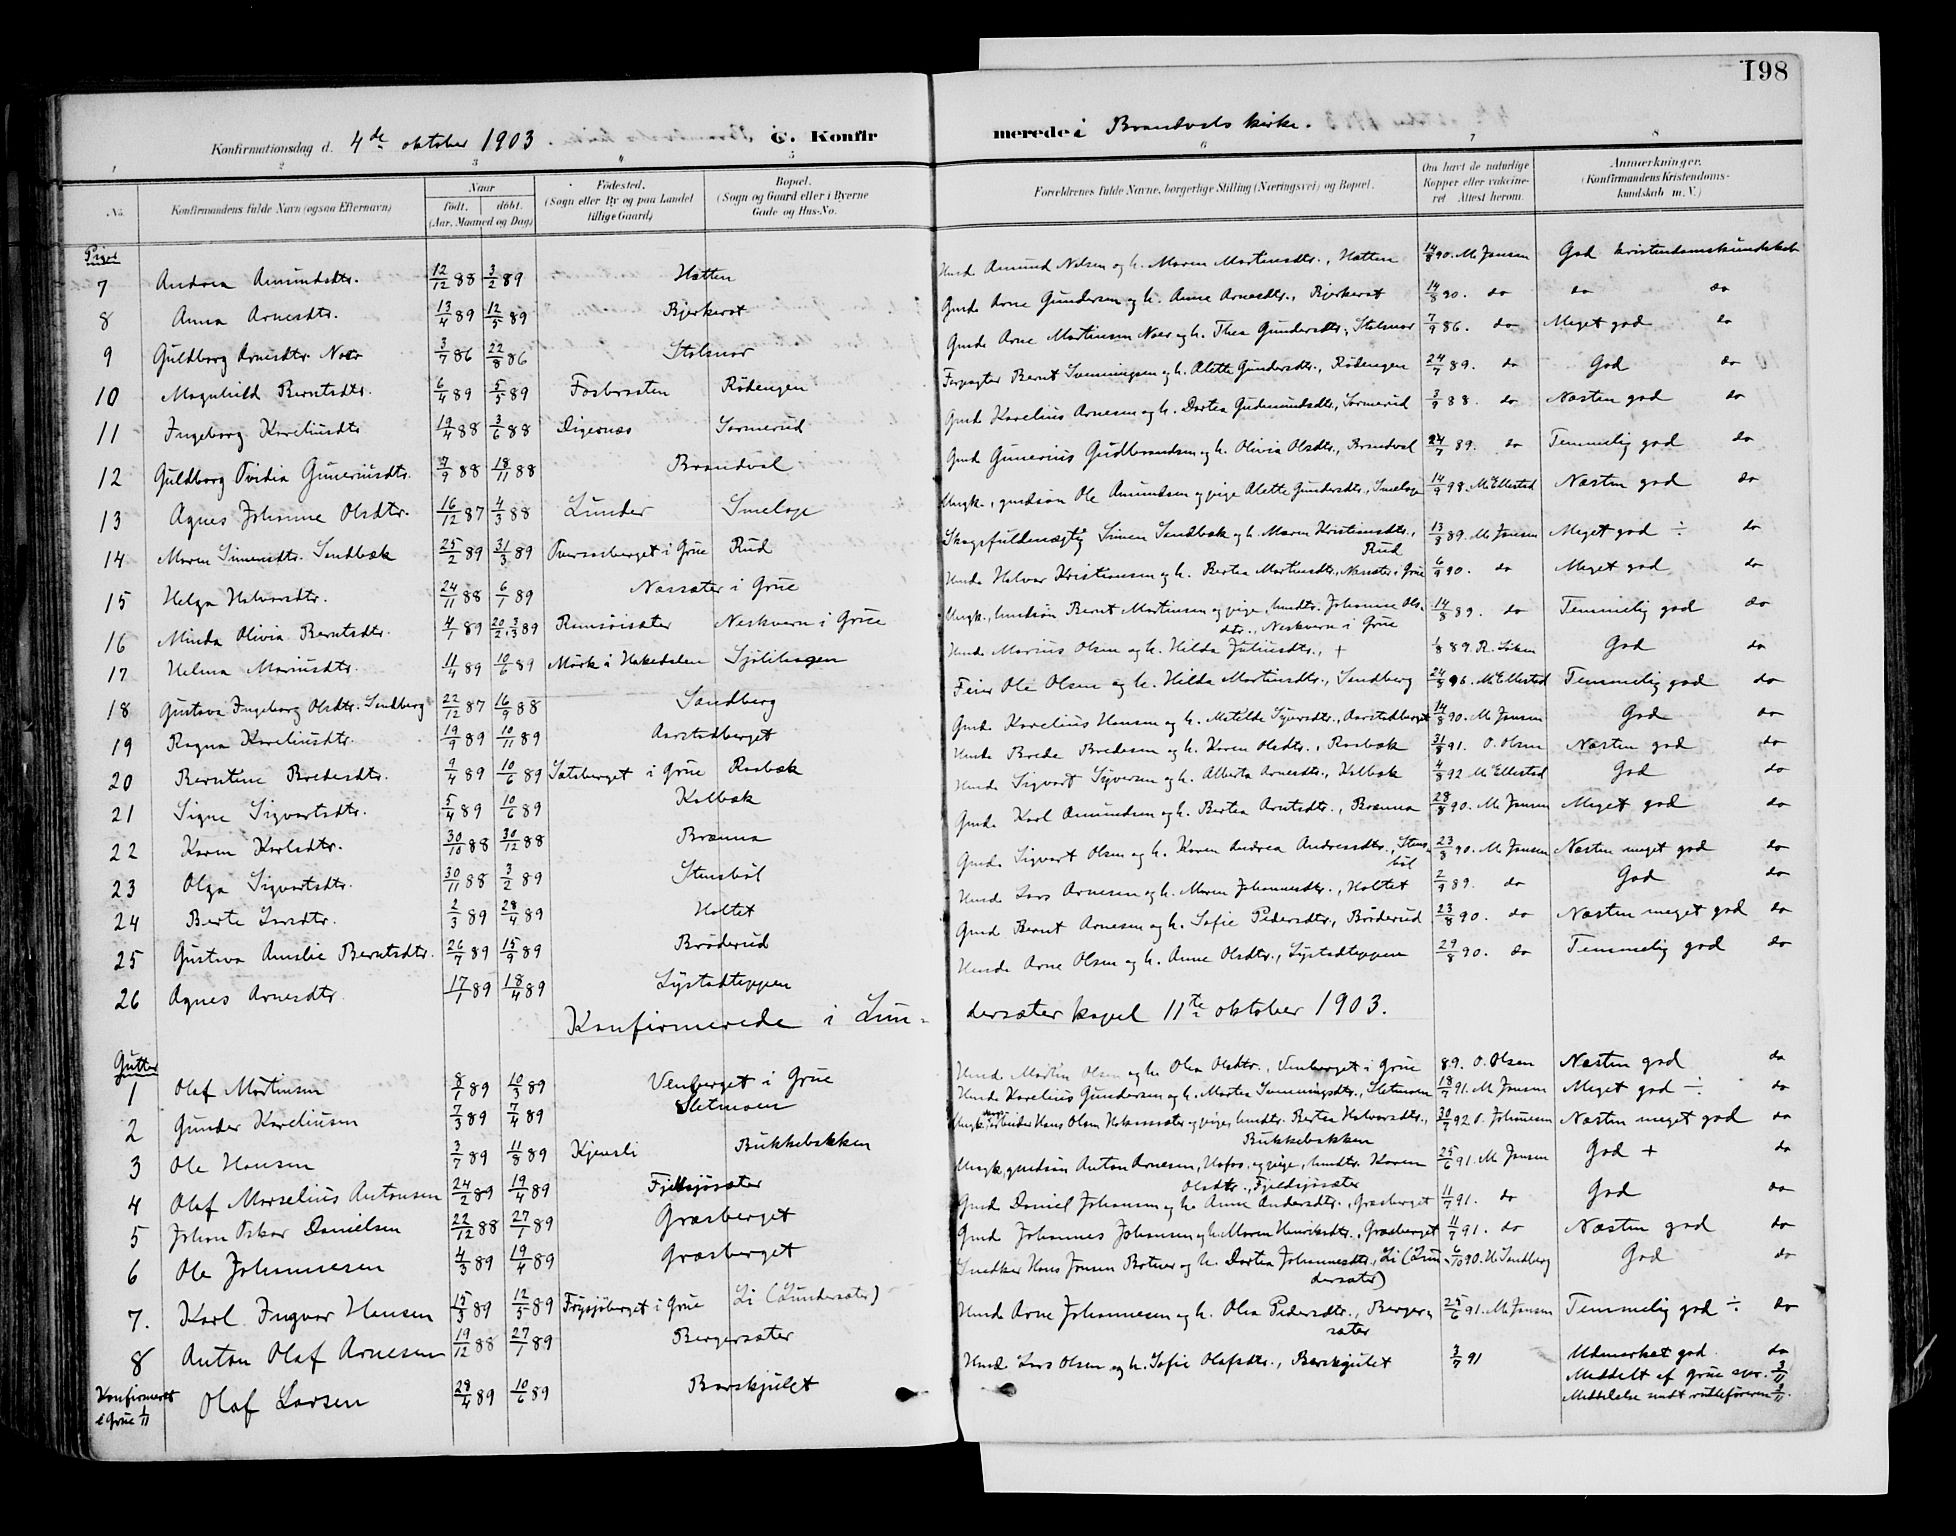 198
Konfirmationsdag d. 4de oktober 1903. C. Konfirmerede i Brandvals kirke.
1 2 3 4 5 6 7 8
No. Konfirmandens fulde Navn (ogsaa Efternavn) Naar født. døbt. (Aar, Maaned og Dag) Fødested. (Sogn eller By og paa Landet tillige Gaard) Bopæl. (Sogn og Gaard eller i Byerne Gade og Hus-No. Forældrenes fulde Navne, borgerlige Stilling (Næringsvei) og Bopæl. Om havt de naturlige Kopper eller vakcineret Attest herom. Anmærkninger. (Konfirmandens Kristendomskundskab m. V.)
Piger
7 Andrea Amundsdtr. 12/12 88 3/2 89 Hatten Husm. Amund Nilsen og h. Maren Martinsdtr., Hatten 14/8 90. M. Jansen God kristendomskundskab
8 Anna Arnesdtr. 13/4 89 12/5 89 Bjerkerot Gmd. Arne Gundersen og h. Anne Arnesdtr., Bjerkerot 14/8 90. do do do
9 Guldborg Arnesdtr. Noer 3/7 86 22/8 86 Stolsnor Gmd. Arne Martinsen Noer og h. Thea Gundersdtr., Stolsnor 7/9 86. do Meget god do
10 Magnhild Berntsdtr. 6/4 89 5/5 89 Fosbraaten Rødengen Forpagter Bernt Svenningsen og h. Alette Gundersdtr., Rødengen 24/7 89. do God do
11 Ingeborg Kareliusdtr 19/4 88 3/6 88 Digernæs Sormerud Gmd. Karelius Arnesen og h. Dortea Gudmundsdtr., Sormerud 3/9 88. do Næsten god do
12 Guldborg Ovidia Guneriusdtr. 7/9 88 18/11 88 Brandval Gmd Gunerius Gudbrandsen og h. Olivia Olsdtr., Brandval 24/7 89. do Temmelig god do
13 Agnes Johanne Olsdtr. 16/12 87 4/3 88 Lunder Smeloje Ungk., gmdsøn Ole Amundsen og pige Alette Gundersdtr., Smeloje 14/9 98. M. Ellestad Næsten god do
14 Maren Simensdtr. Sandbæk 25/2 89 31/3 89 Tversosberget i Grue Rud Skogsfuldmægtig Simen Sandbæk og h. Maren Kristiansdtr., Rud 13/8 89. M. Jansen Meget god ÷ do
15 Helga Halvorsdtr. 24/11 88 6/1 89 Næssæter i Grue Husm. Halvor Kristiansen og h. Bertea Martinsdtr., Næssæter i Grue 6/9 90. do Meget god do
16 Minda Olivia Berntsdtr. 4/1 89 20/2, 3/3 89 Rensøisæter Neskvern i Grue Ungk., husmdsøn Bernt Martinsen og pige, husmdtr. Johanne Olsdtr., Neskvern i Grue 14/8 89. do Temmelig god do
17 Helma Mariusdtr. 11/4 89 10/6 89 Mørk i Hakedalen Sjølihagen Husm. Marius Olsen og h. Hilda Juliusdtr., + 1/8 89. God do
18 Gustava Ingeborg Olsdtr. Sandberg 22/12 87 16/9 88 Sandberg Feier Ole Olsen og h. Hilda Martinsdtr., Sandberg 24/8 96. M. Ellestad Temmelig god do
19 Ragna Kareliusdtr. 19/9 89 10/11 89 Aarstadberget Gmd. Karelius Hansen og h. Matilde Syversdtr., Aarstadberget 14/8 90. M. Jansen God do
20 Berntine Bredesdtr. 9/4 89 10/6 89 Satsberget i Grue Rosbæk Husm. Brede Bredesen og h. Karen Olsdtr., Rosbæk 31/8 91. O. Olsen Næsten god do
21 Signe Sigvartsdtr. 5/4 89 10/6 89 Kolbæk Husm. Sigvart Syversen og h. Alberta Arnesdtr., Kolbæk 4/8 92 M. Ellestad God do
22 Karen Karlsdtr. 30/10 88 30/12 88 Brænna Gmd. Karl Amundsen og h. Bertea Arntsdtr., Brænna 28/8 90. M. Jansen Meget god do
23 Olga Sigvartsdtr. 30/11 88 3/2 89 Stensbøl Gmd. Sigvart Olsen og h. Karen Andrea Andreasdtr., Stensbøl 23/8 90. M. Jansen Næsten meget god do
24 Berte Larsdtr. 2/3 89 28/4 89 Holtet Husm. Lars Arnesen og h. Maren Johannesdtr., Holtet 2/9 89. do God do
25 Gustava Amalie Berntsdtr. 26/7 89 15/9 89 Brøderud Gmd. Bernt Arnesen og h. Sofie Pedersdtr., Brøderud 23/8 90. do Næsten meget god do
26 Agnes Arnesdtr. 17/1 89 18/4 89 Lystadteppen Husm. Arne Olsen og h. Anne Olsdtr., Lystadteppen 29/8 90. do Temmelig god do
Konfirmerede i Lundersæter kapel 11te oktober 1903.
Gutter
1 Olaf Martinsen 8/1 89 10/3 89 Venberget i Grue Husm. Martin Olsen og h. Olea Olsdtr., Venberget i Grue 89. O. Olsen Næsten god do
2 Gunder Kareliusen 7/3 89 7/4 89 Sletmoen Husm. Karelius Gundersen og h. Martea Svenningsdtr., Sletmoen 18/7 91. M. Jansen Meget god ÷ do
3 Ole Hansen 3/7 89 11/8 89 Kjensli Bukkebakken Hans Olsen og pige, husmdtr. Bertea Halvorsdtr., Bukkebakken 30/7 92 Næsten meget god do
4 Olaf Marselius Antonsen 24/2 89 19/4 89 Fjeldsjøsæter Ungk., gmdsøn Anton Arnesen, Hofos, og pige, husmdtr. Karen Olsdtr., Fjeldsjøsæter 25/6 91. M. Jansen God + do
5 Johan Oskar Danielsen 22/12 88 27/1 89 Græsberget Gmd. Daniel Johansen og h. Anne Andersdtr., Græsberget 11/7 91. do God do
6 Ole Johannesen 4/3 89 19/4 89 Græsberget Gmd. Johannes Johansen og h. Maren Henriksdtr., Græsberget 11/7 91. do Næsten god do
7. Karl Ingvar Hansen 15/3 89 12/5 89 Frysjøberget i Grue Li (Lundersæter) Snedker Hans Jonsen Botner og h. Dortea Johannesdtr., Li (Lundersæter) 6/10 90. H. Sandberg God do
8 Anton Olaf Arnesen 19/12 88 27/1 89 Bergersæter Husm. Arne Johannesen og h. Olea Pedersdtr., Bergersæter 25/6 91. M. Jansen Temmelig god ÷ do
Konfirmeret i Grue 1/11 Olaf Larsen 28/4 89 10/6 89 Barskjulet Husm. Lars Olsen og h. Sofie Olafsdtr., Barskjulet 3/7 91 Udmærket god do
Meddelt af Grue spr. 3/11
Meddelelse sendt rulleføreren 3/11.